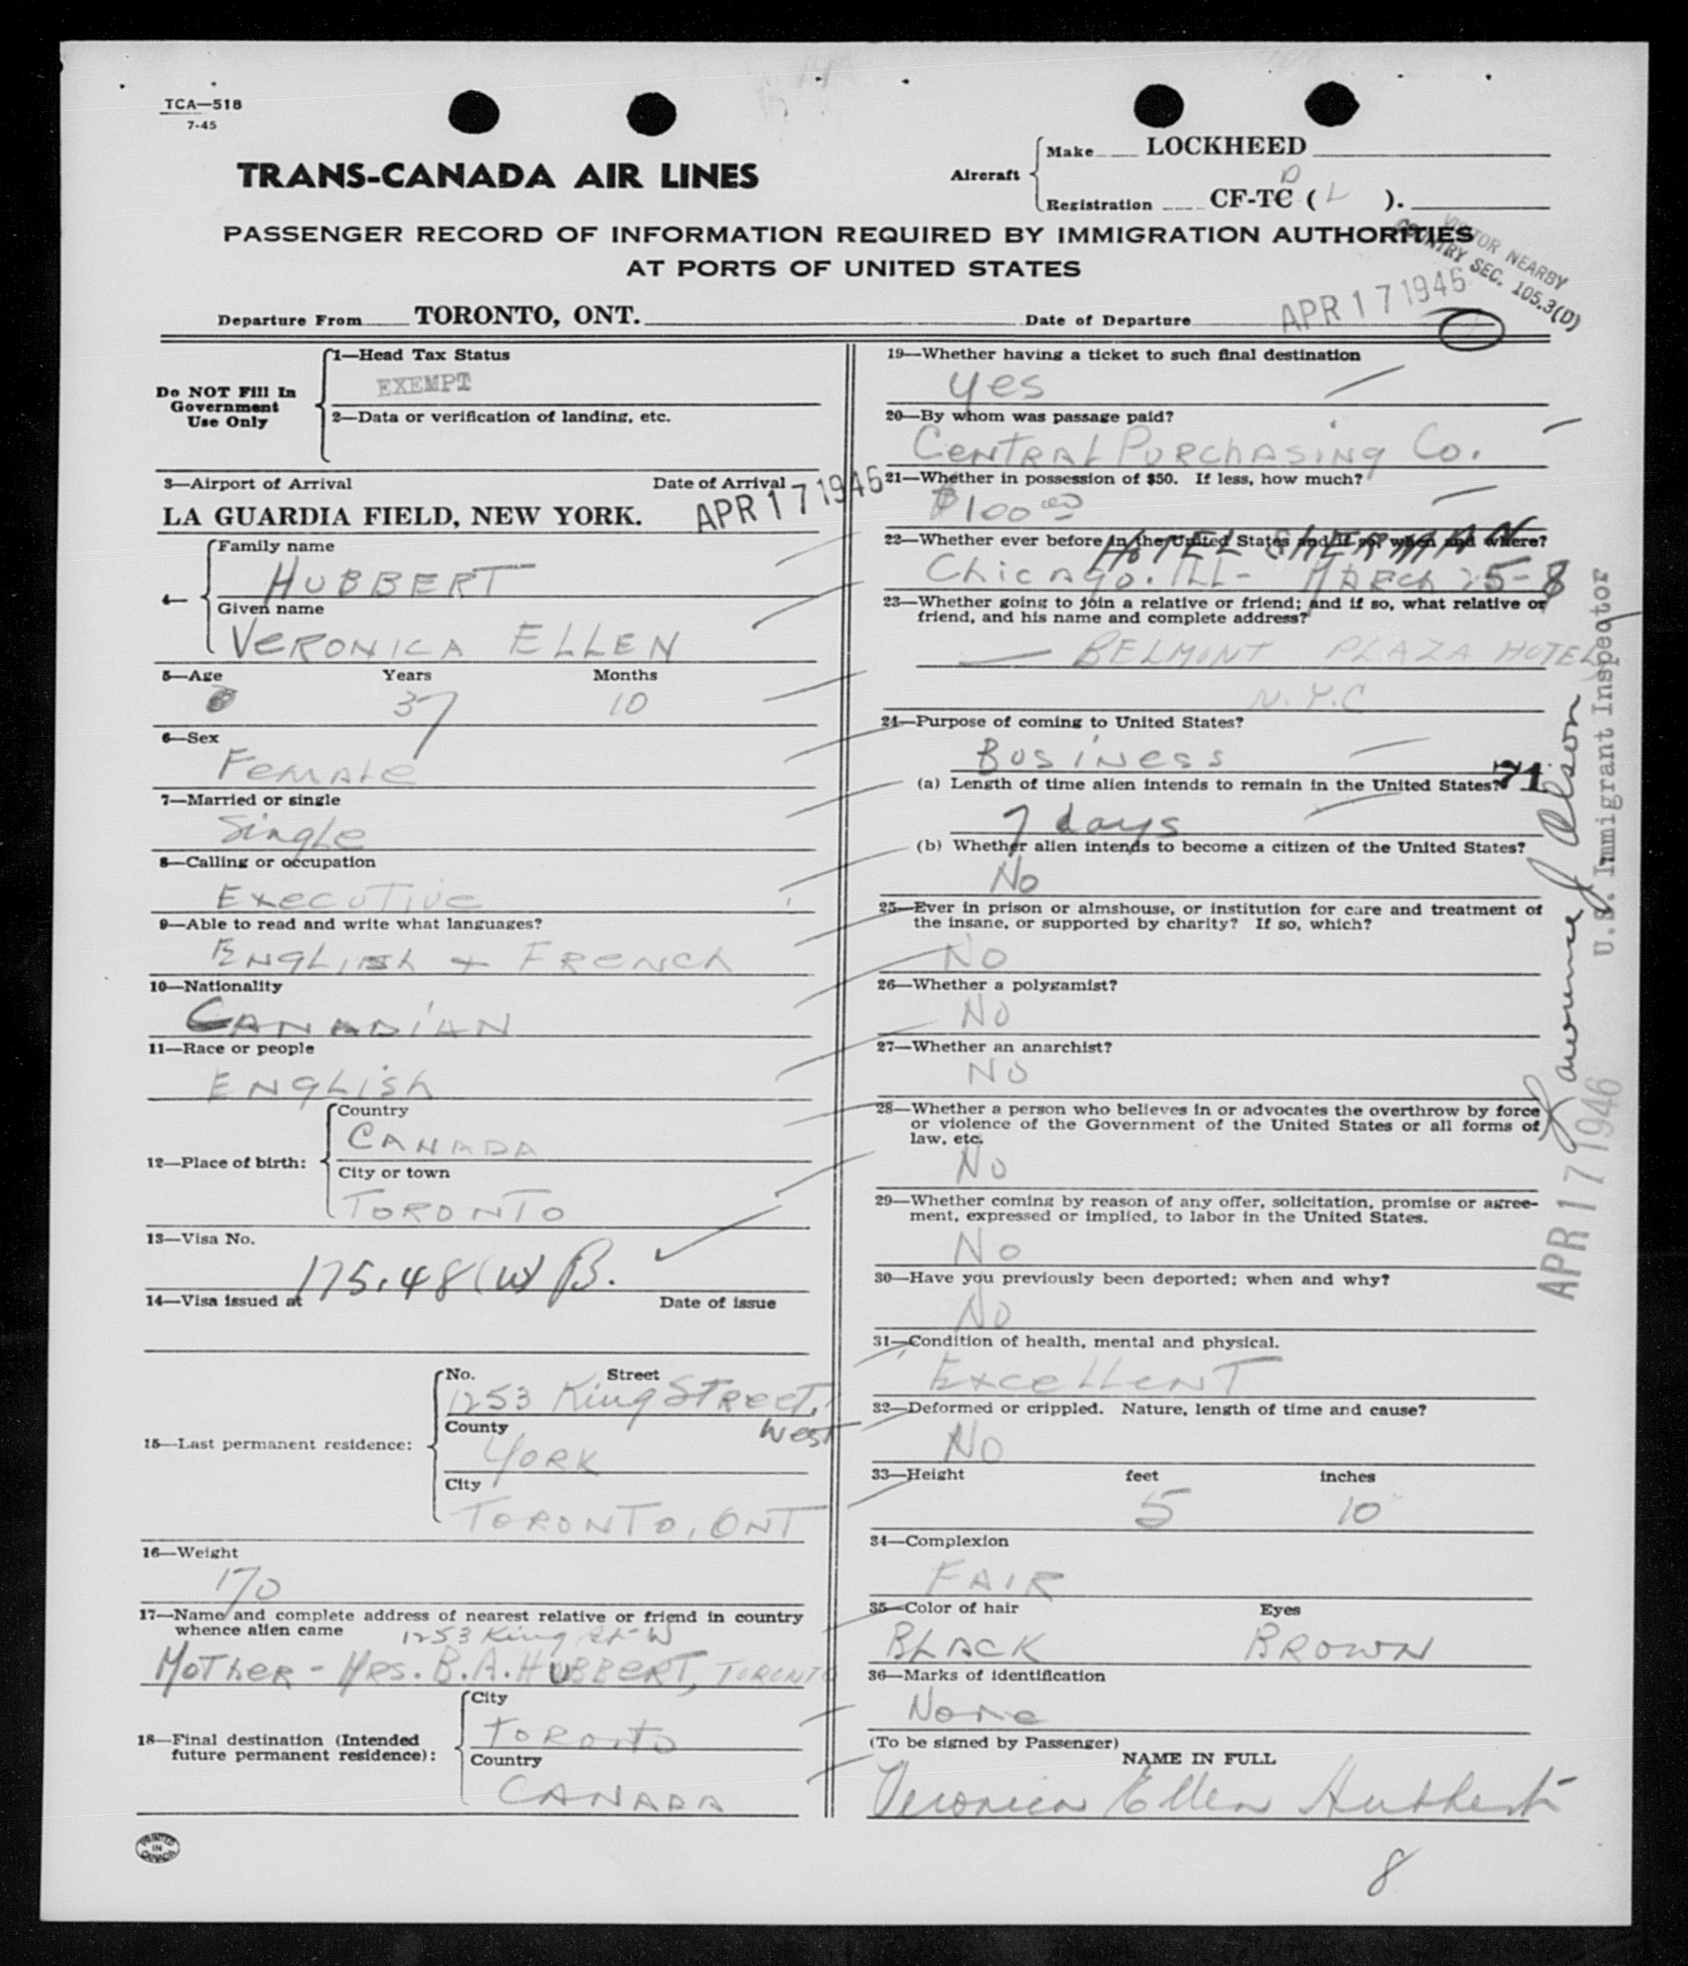 TCA—518
7-45
TRANS-CANADA AIR LINES
Aircraft
Make LOCKHEED
Registration CF-TC D ( L ).
PASSENGER RECORD OF INFORMATION REQUIRED BY IMMIGRATION AUTHORITIES
AT PORTS OF UNITED STATES
VISITOR NEARBY
COUNTRY SEC. 105.3(D)
Departure From TORONTO, ONT. Date of Departure APR 17 1946
Do NOT Fill In
Government
Use Only
1—Head Tax Status
EXEMPT
2—Data or verification of landing, etc.
3—Airport of Arrival Date of Arrival
LA GUARDIA FIELD, NEW YORK. APR 17 1946
4—
Family name
HUBBERT
Given name
VERONICA ELLEN
5—Age Years Months
37 10
6—Sex
Female
7—Married or single
Single
8—Calling or occupation
Executive
9—Able to read and write what languages?
English + French
10—Nationality
CANADIAN
11—Race or people
English
12—Place of birth:
Country
CANADA
City or town
TORONTO
13—Visa No.
175.48 (W) B.
14—Visa issued at Date of issue
15—Last permanent residence:
No. Street
1253 King Street,
West
County
York
City
TORONTO, ONT
16—Weight
170
17—Name and complete address of nearest relative or friend in country
whence alien came 1253 King St W
Mother - Mrs. B. A. HUBBERT, TORONTO
18—Final destination (Intended
future permanent residence):
City
Toronto
Country
CANADA
PRINTED
IN
CANADA
19—Whether having a ticket to such final destination
yes
20—By whom was passage paid?
Central Purchasing Co.
21—Whether in possession of $50. If less, how much?
$100.00
22—Whether ever before in the United States and if so, when and where?
HOTEL SHERMAN
Chicago. ILL - March 25-8
23—Whether going to join a relative or friend; and if so, what relative or
friend, and his name and complete address?
— BELMONT PLAZA HOTEL
N.Y.C
24—Purpose of coming to United States?
Business
(a) Length of time alien intends to remain in the United States?
7 days
(b) Whether alien intends to become a citizen of the United States?
No
25—Ever in prison or almshouse, or institution for care and treatment of
the insane, or supported by charity? If so, which?
No
26—Whether a polygamist?
No
27—Whether an anarchist?
No
28—Whether a person who believes in or advocates the overthrow by force
or violence of the Government of the United States or all forms of
law, etc.
No
29—Whether coming by reason of any offer, solicitation, promise or agree-
ment, expressed or implied, to labor in the United States.
No
30—Have you previously been deported; when and why?
No
31—Condition of health, mental and physical.
Excellent
32—Deformed or crippled. Nature, length of time and cause?
No
33—Height feet inches
5 10
34—Complexion
FAIR
35—Color of hair Eyes
BLACK BROWN
36—Marks of identification
None
(To be signed by Passenger)
NAME IN FULL
Veronica Ellen Hubbert
8
Lawrence J Olson
U.S. Immigrant Inspector
APR 17 1946